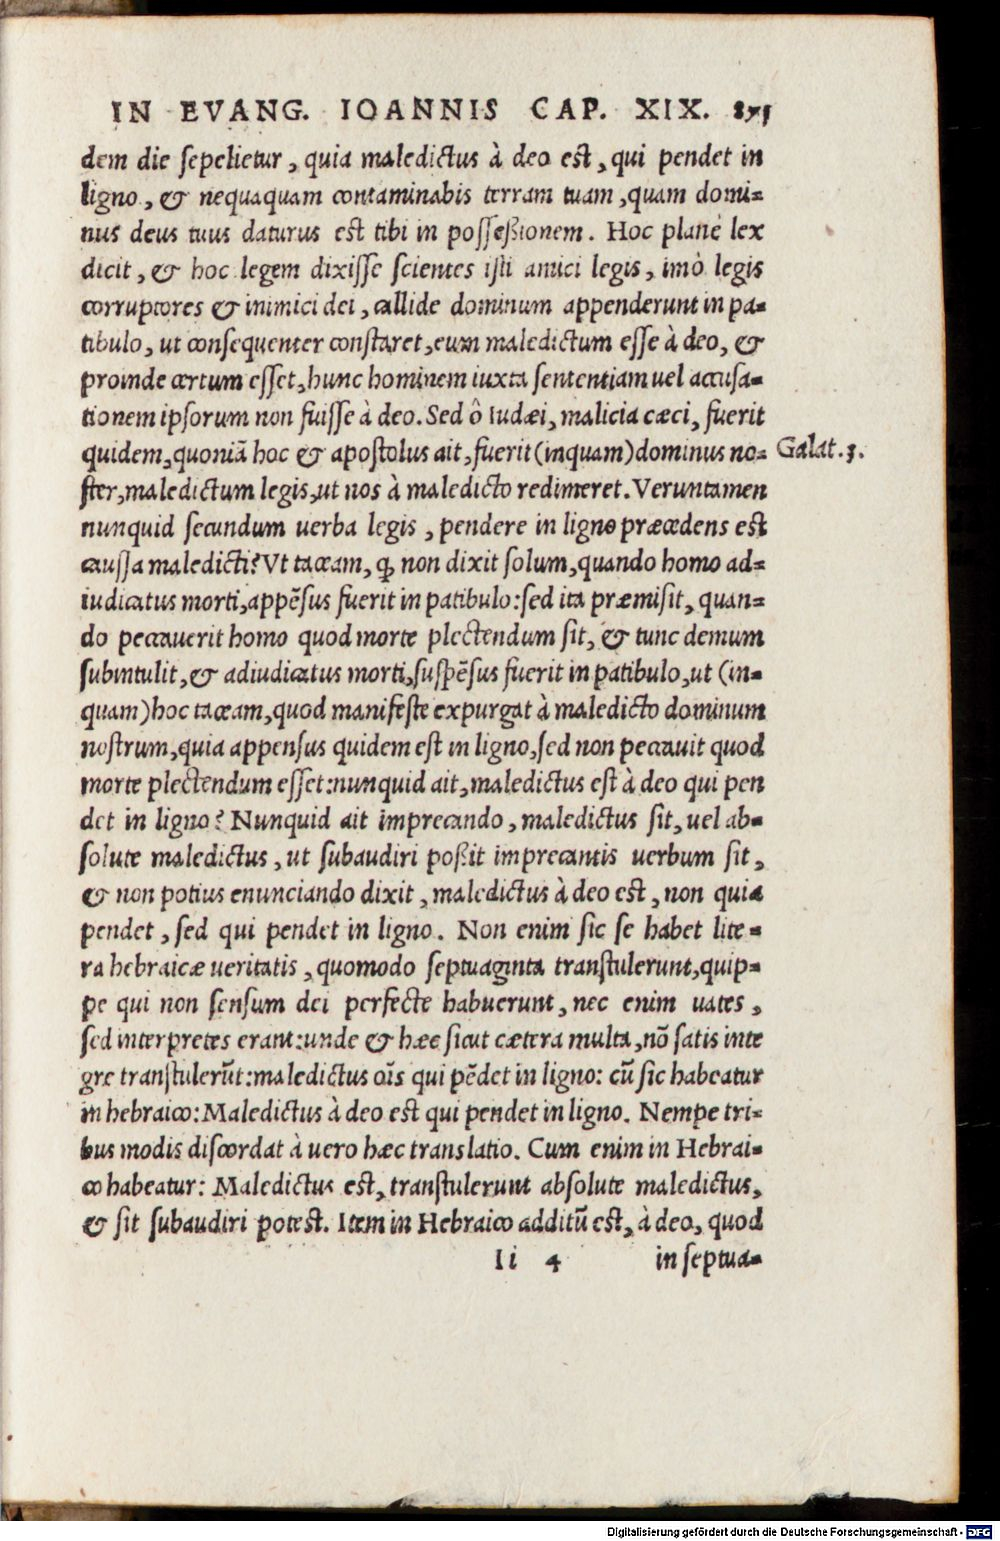 IN EVANG. IOANNIS CAP. XIX. 871
dem die sepelietur, quia maledictus à deo est, qui pendet in
ligno, & nequaquam contaminabis terram tuam, quam domi-
nus deus tuus daturus est tibi in possessionem. Hoc planè lex
dicit, & hoc legem dixisse scientes isti amici legis, imò legis
corruptores & inimici dei, callide dominum appenderunt in pa-
tibulo, ut consequenter constaret, eum maledictum esse à deo, &
proinde certum esset, hunc hominem iuxta sententiam uel accusa-
tionem ipsorum non fuisse à deo. Sed ô Iudæi, malicia cæci, fuerit
quidem, quoniã hoc & apostolus ait, fuerit (inquam) dominus no- Galat. 3.
ster, maledictum legis, ut nos à maledicto redimeret. Veruntamen
nunquid secundum uerba legis, pendere in ligno præcedens est
caussa maledicti? Vt taceam, ꝙ non dixit solum, quando homo ad-
iudicatus morti, appẽsus fuerit in patibulo: sed ita præmisit, quan-
do peccauerit homo quod morte plectendum sit, & tunc demum
subintulit, & adiudicatus morti, suspẽsus fuerit in patibulo, ut (in-
quam) hoc taceam, quod manifeste expurgat à maledicto dominum
nostrum, quia appensus quidem est in ligno, sed non peccauit quod
morte plectendum esset: nunquid ait, maledictus est à deo qui pen
det in ligno? Nunquid ait imprecando, maledictus sit, uel ab-
solute maledictus, ut subaudiri possit imprecantis uerbum sit,
& non potius enunciando dixit, maledictus à deo est, non quia
pendet, sed qui pendet in ligno. Non enim sic se habet lite-
ra hebraicæ ueritatis, quomodo septuaginta transtulerunt, quip-
pe qui non sensum dei perfecte habuerunt, nec enim uates,
sed interpretes erant: unde & hæc sicut cætera multa, nõ satis inte
gre transtulerũt: maledictus oĩs qui pẽdet in ligno: cũ sic habeatur
in hebraico: Maledictus à deo est qui pendet in ligno. Nempe tri-
bus modis discordat à uero hæc translatio. Cum enim in Hebrai-
co habeatur: Maledictus est, transtulerunt absolute maledictus,
& sit subaudiri potest. Item in Hebraico additũ est, à deo, quod
Ii 4 in septua-
Digitalisierung gefördert durch die Deutsche Forschungsgemeinschaft - DFG